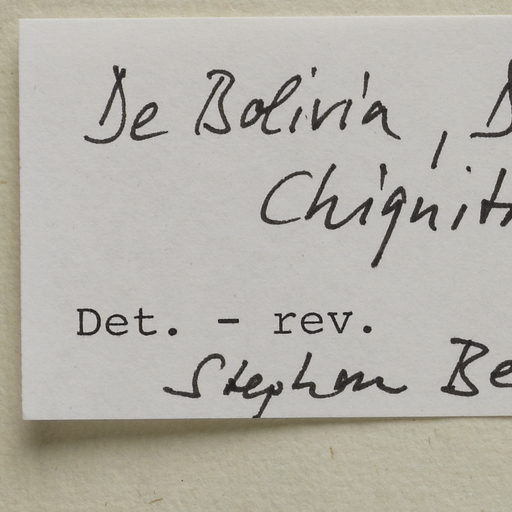 De Bolivia, D
Chiquit
Det. - rev.
Stephan Be